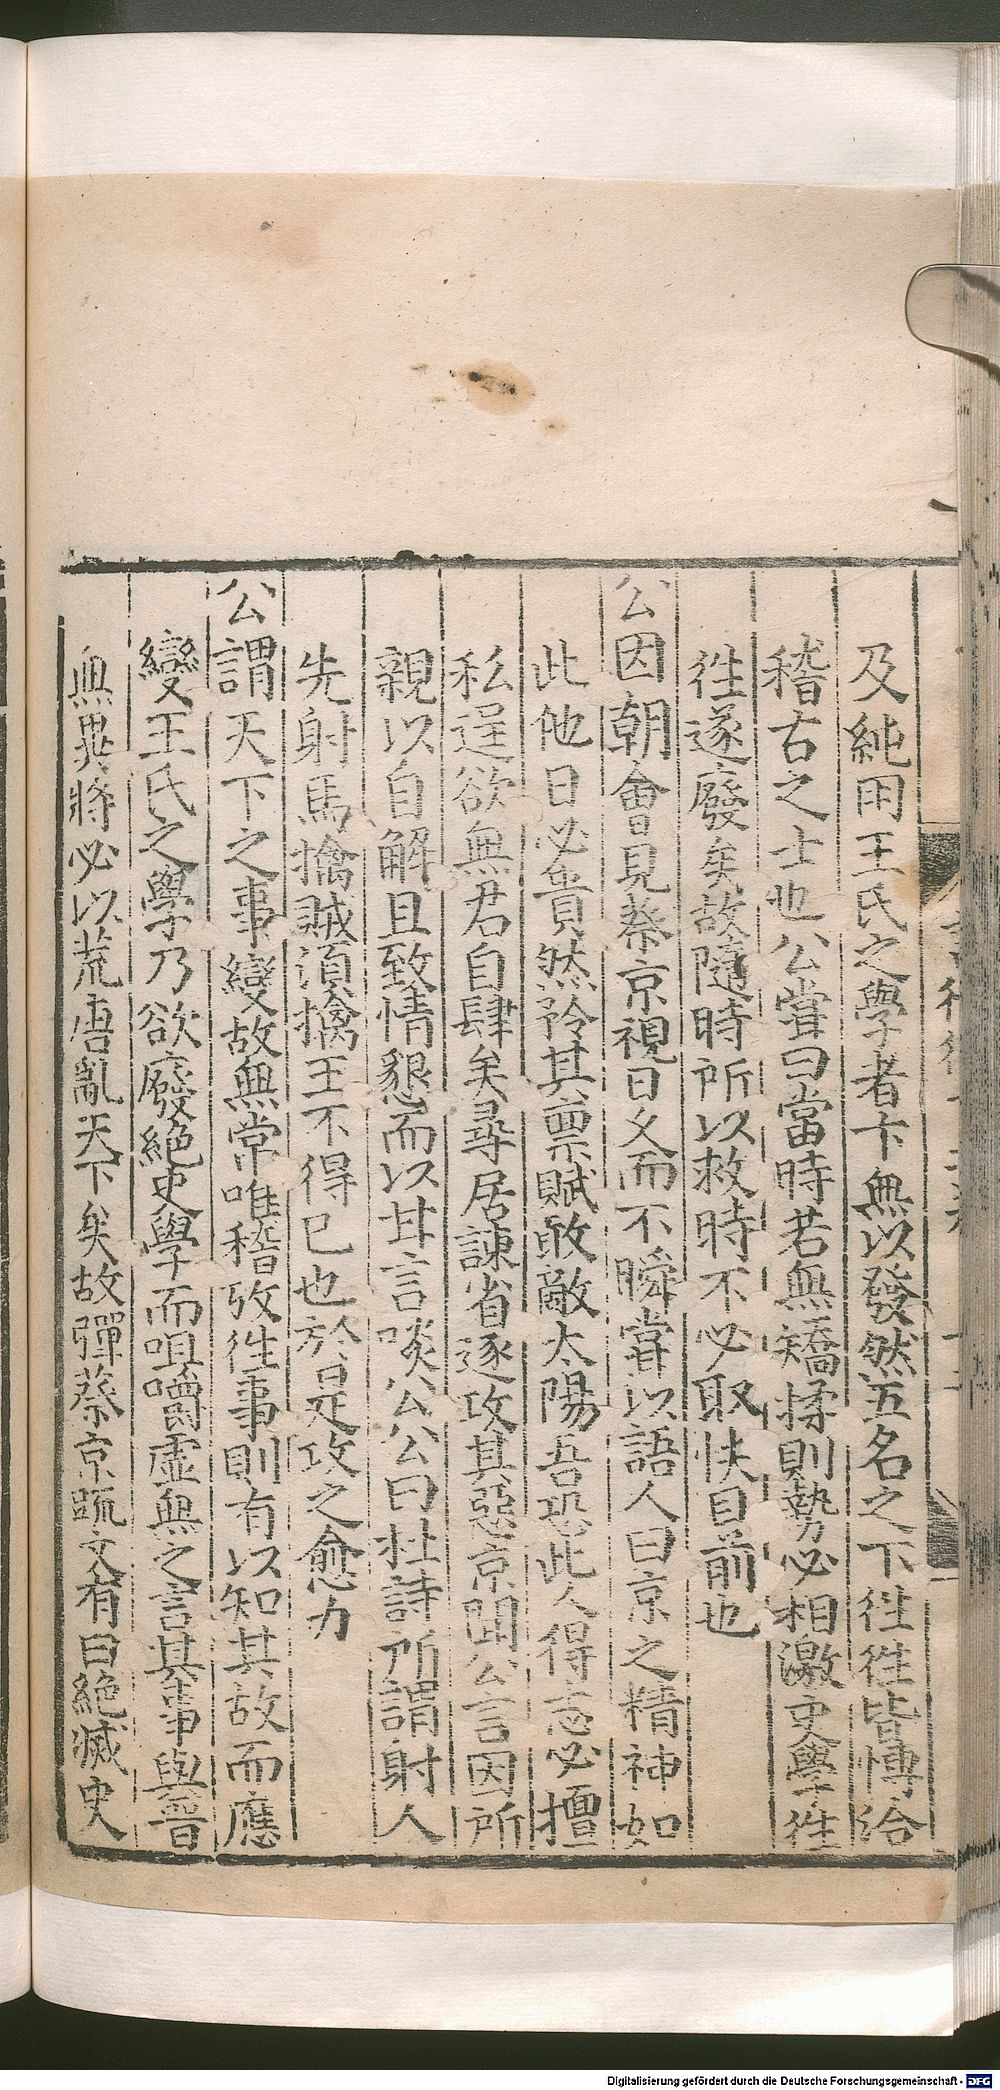 及純用王氏之學者卞無以發然五名之下徃徃皆愽洽
稽古之士也公甞曰當時若無矯揉則勢必相激史學徃
徃遂廢矣故隨時所以救時不必取快目前也
公因朝會見蔡京視日乆而不瞬甞以語人曰京之精神如
此他日必貴然矜其禀賦敢敵太陽吾恐此人得志必擅
私逞欲無君自肆矣尋居諫省遂攻其惡京聞公言因所
親以自解且致情懇而以甘言啖公公曰杜詩所謂射人
先射馬擒賊須擒王不得已也於是攻之愈力
公謂天下之事變故無常唯稽攷徃事則有以知其故而應
變王氏之學乃欲廢絶史學而咀嚼虚無之言其事與晉
無異將必以荒唐亂天下矣故彈蔡京疏文有曰絶滅史
Digitalisierung gefördert durch die Deutsche Forschungsgemeinschaft - DFG